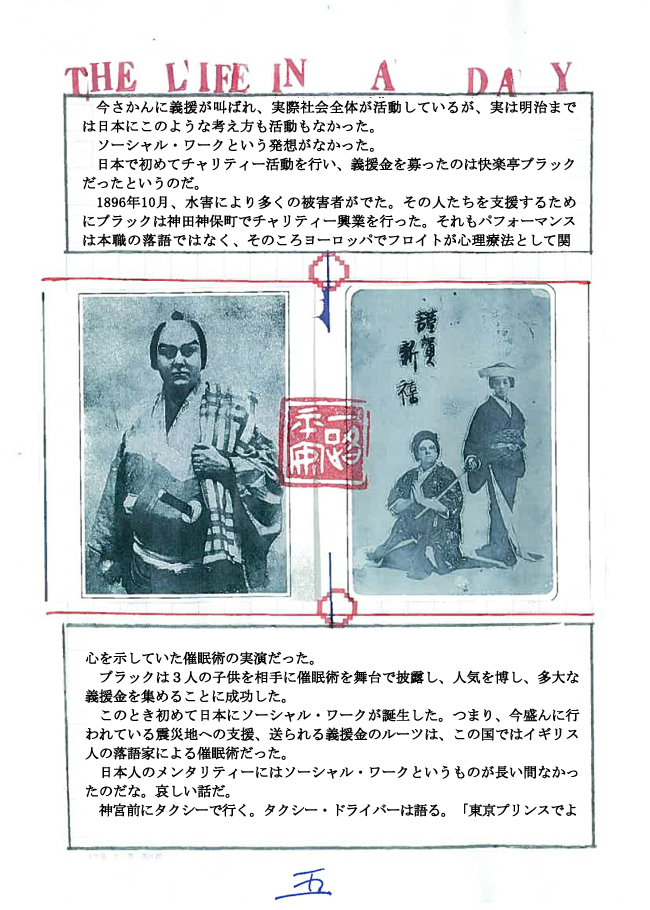 THE LIFE IN A DAY
今さかんに義援が叫ばれ、実際社会全体が活動しているが、実は明治まで
は日本にこのような考え方も活動もなかった。
ソーシャル・ワークという発想がなかった。
日本で初めてチャリティー活動を行い、義援金を募ったのは快楽亭ブラック
だったというのだ。
1896年10月、水害により多くの被害者がでた。その人たちを支援するため
にブラックは神田神保町でチャリティー興業を行った。それもパフォーマンス
は本職の落語ではなく、そのころヨーロッパでフロイトが心理療法として関
謹賀
新禧
心を示していた催眠術の実演だった。
ブラックは３人の子供を相手に催眠術を舞台で披露し、人気を博し、多大な
義援金を集めることに成功した。
このとき初めて日本にソーシャル・ワークが誕生した。つまり、今盛んに行
われている震災地への支援、送られる義援金のルーツは、この国ではイギリス
人の落語家による催眠術だった。
日本人のメンタリティーにはソーシャル・ワークというものが長い間なかっ
たのだな。哀しい話だ。
神宮前にタクシーで行く。タクシー・ドライバーは語る。「東京プリンスでよ
五